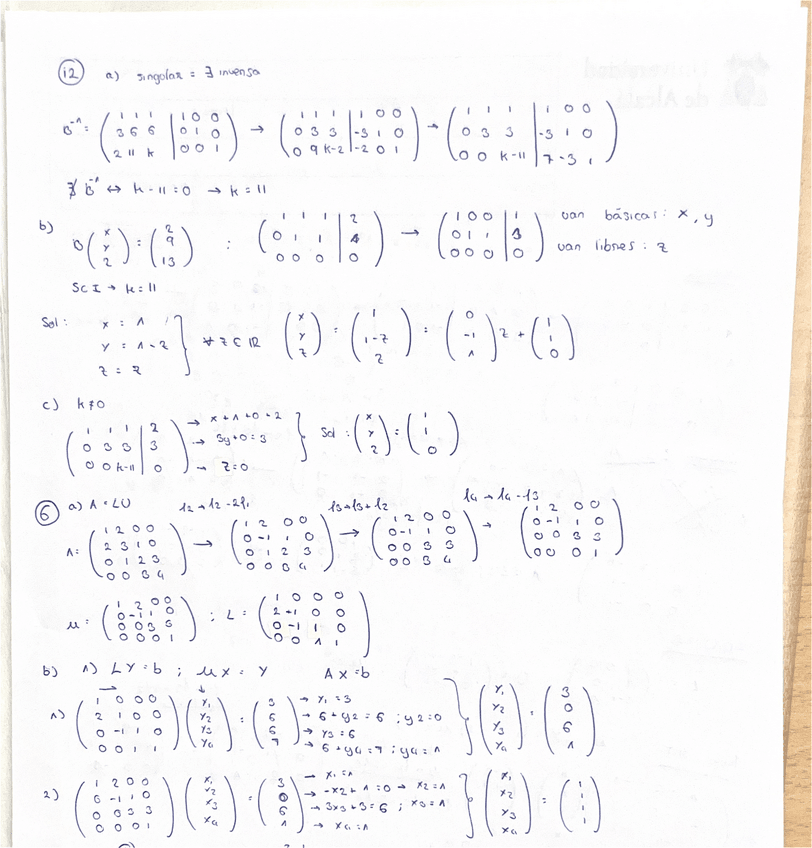 12 a) singular = ∄ inversa
B⁻¹ = ( 1 1 1 | 1 0 0 ; 3 6 6 | 0 1 0 ; 2 11 k | 0 0 1 ) → ( 1 1 1 | 1 0 0 ; 0 3 3 | -3 1 0 ; 0 9 k-2 | -2 0 1 ) → ( 1 1 1 | 1 0 0 ; 0 3 3 | -3 1 0 ; 0 0 k-11 | 7 -3 1 )
∄ B⁻¹ ↔ k-11=0 → k=11
b) B ( x ; y ; z ) = ( 2 ; 9 ; 13 ) : ( 1 1 1 | 2 ; 0 1 1 | ; 0 0 0 | 0 ) → ( 1 0 0 | 1 ; 0 1 1 | ; 0 0 0 | 0 ) van básicas: x, y
van libres: z
SCI → k=11
Sol: x = 1
y = 1-z
z = z
∀ z ∈ IR ( x ; y ; z ) = ( 1 ; 1-z ; z ) = ( 0 ; -1 ; 1 ) z + ( 1 ; 1 ; 0 )
c) k≠0
( 1 1 1 | 2 ; 0 3 3 | 3 ; 0 0 k-11 | 0 ) → x+1+0=2 → 3y+0=3 → z=0 } Sol: ( x ; y ; z ) = ( 1 ; 1 ; 0 )
6 a) A=LU l2→l2-2l1 l3→l3+l2 l4→l4-l3
A= ( 1 2 0 0 ; 2 3 1 0 ; 0 1 2 3 ; 0 0 3 4 ) → ( 1 2 0 0 ; 0 -1 1 0 ; 0 1 2 3 ; 0 0 3 4 ) → ( 1 2 0 0 ; 0 -1 1 0 ; 0 0 3 3 ; 0 0 3 4 ) → ( 1 2 0 0 ; 0 -1 1 0 ; 0 0 3 3 ; 0 0 0 1 )
U = ( 1 2 0 0 ; 0 -1 1 0 ; 0 0 3 3 ; 0 0 0 1 ) ; L = ( 1 0 0 0 ; 2 1 0 0 ; 0 -1 1 0 ; 0 0 1 1 )
b) 1) LY=b ; UX = Y AX=b
1) ( 1 0 0 0 ; 2 1 0 0 ; 0 -1 1 0 ; 0 0 1 1 ) ( y1 ; y2 ; y3 ; y4 ) = ( 3 ; 6 ; 6 ; 7 ) → y1=3 → 6+y2=6 ; y2=0 → y3=6 → 6+y4=7 ; y4=1 } ( y1 ; y2 ; y3 ; y4 ) = ( 3 ; 0 ; 6 ; 1 )
2) ( 1 2 0 0 ; 0 -1 1 0 ; 0 0 3 3 ; 0 0 0 1 ) ( x1 ; x2 ; x3 ; x4 ) = ( 3 ; 0 ; 6 ; 1 ) → x1=1 → -x2+1=0 → x2=1 → 3x3+3=6 ; x3=1 → x4=1 } ( x1 ; x2 ; x3 ; x4 ) = ( 1 ; 1 ; 1 ; 1 )